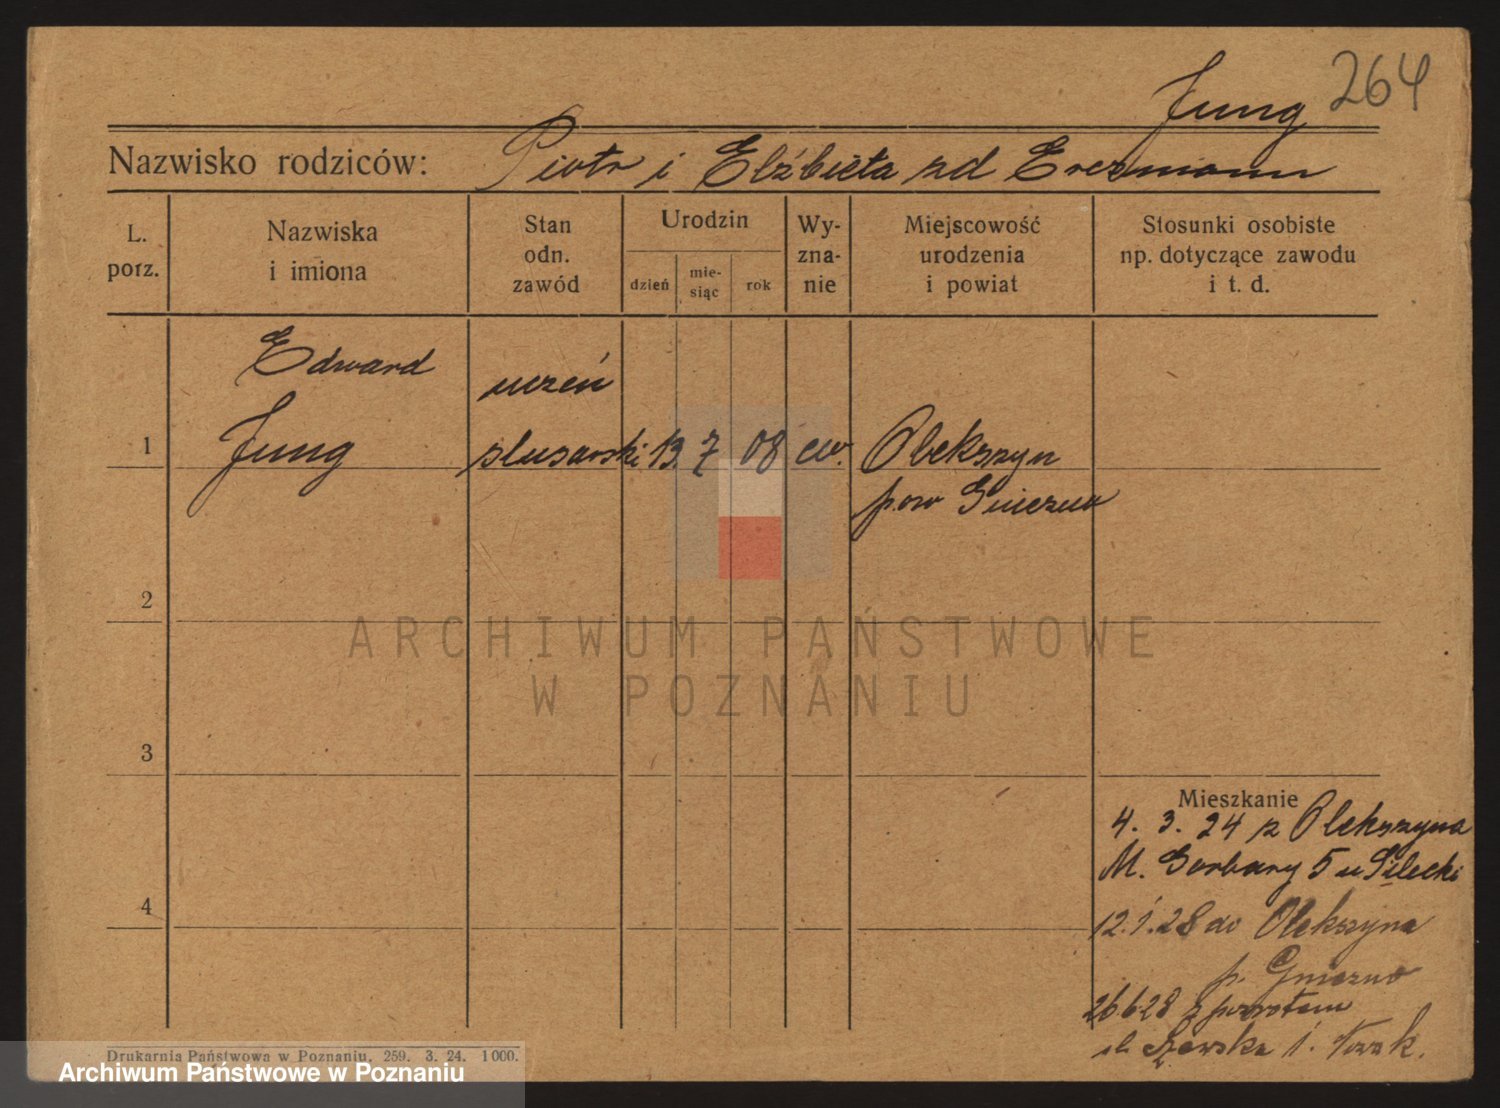 Jung 264
Nazwisko rodziców: Piotr i Elżbieta zd
L. porz.
Nazwiska i imiona
Stan odn. zawód
Urodzin
dzień
mie- siąc
rok
Wy- zna- nie
Miejscowość urodzenia i powiat
Stosunki osobiste np. dotyczące zawodu i t. d.
Edward uczeń
1 Jung slusarski 13 7 08 ew. Olekszyn
pow Gniezno
2
ARCHIWUM PAŃSTWOWE
W POZNANIU
3
Mieszkanie
4. 3. 24 z Olekszyna
M. Garbary 5 u
4
12.1.28 do Olekszyna
p. Gniezno
26.6.28 z powrotem
Drukarnia Państwowa w Poznaniu. 259. 3. 24. 1000.
Archiwum Państwowe w Poznaniu